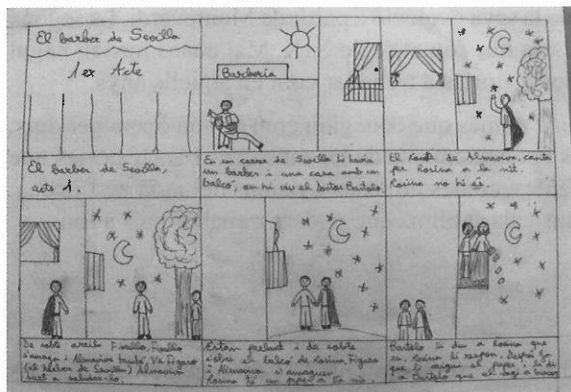 El barber de Sevilla
1er Acte
Barberia
El barber de Sevilla,
acte 1.
En un carrer de Sevilla hi havia
un barber i una casa amb un
balcó, on hi viu el doctor Bartolo.
El Comte de Almaviva, canta
per Rosina a la nit.
Rosina no hi és.
De sobte arriba Fiorello, Fiorello
s'amaga i Almaviva també. Ve Figaro
(el barber de Sevilla) Almaviva
surt a saludar-lo.
Estan parlant i de sobte
s'obre el balcó de Rosina, Figaro
i Almaviva s'amaguen.
Rosina té un paper a la mà.
Bartolo li diu a Rosina que
es, Rosina li respon. Després fa
que li caigui el paper i li diu
a Bartolo que el vagi a buscar.